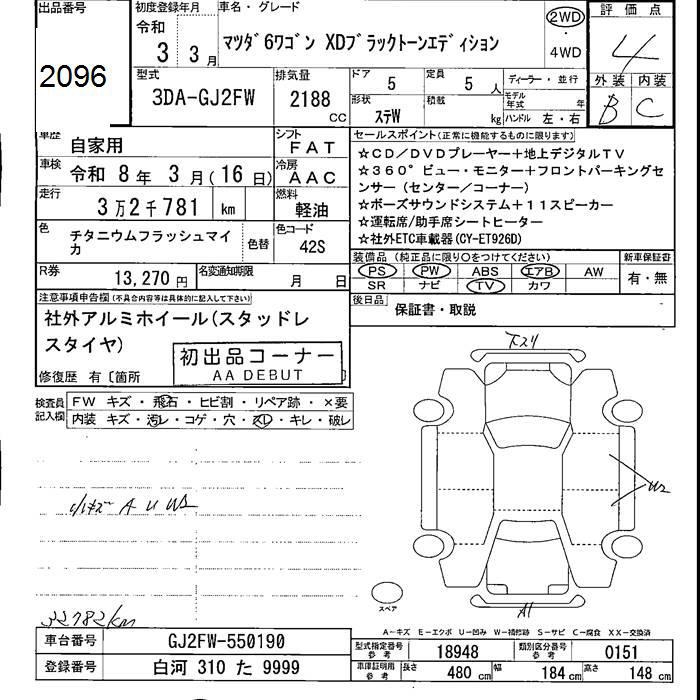 出品番号
2096
初度登録年月
令和
3 3月
車名・グレード
マツダ6ワゴン XDブラックトーンエディション
2WD
・
4WD
評価点
4
外装 内装
B C
型式
3DA-GJ2FW
排気量
2188
cc
ドア
5
定員
5 人
形状
ステW
積載
kg
ディーラー・並行
モデル年式 年
ハンドル 左・右
車歴
自家用
シフト
FAT
車検
令和 8年 3月(16日)
冷房
AAC
走行
3万2千781 km
燃料
軽油
色
チタニウムフラッシュマイ
カ
色替
色コード
42S
R券
13,270円
名変通知期限
月 日
セールスポイント(正常に機能するものに限ります)
☆CD/DVDプレーヤー+地上デジタルTV
☆360°ビュー・モニター+フロントパーキングセ
ンサー(センター/コーナー)
☆ボーズサウンドシステム+11スピーカー
☆運転席/助手席シートヒーター
☆社外ETC車載器(CY-ET926D)
装備品(純正品に限り○をつけてください)
PS PW ABS エアB AW
SR ナビ TV カワ
新車保証書
有・無
後日品
保証書・取説
注意事項申告欄(不具合内容等は具体的に記入して下さい)
社外アルミホイール(スタッドレ
スタイヤ)
初出品コーナー
AA DEBUT
修復歴 有〔箇所
検査員
記入欄
FW キズ・飛石・ヒビ割・リペア跡・×要
内装 キズ・汚レ・コゲ・穴・スレ・キレ・破レ
A U
下スリ
U2
A1
スペア
32782km
A―キズ E―エクボ U―凹み W―補修跡 S―サビ C―腐食 XX―交換済
車台番号
GJ2FW-550190
登録番号
白河 310 た 9999
型式指定番号
参考
18948
類別区分番号
参考
0151
車庫証明用
参考
長さ 480 cm 幅 184 cm 高さ 148 cm